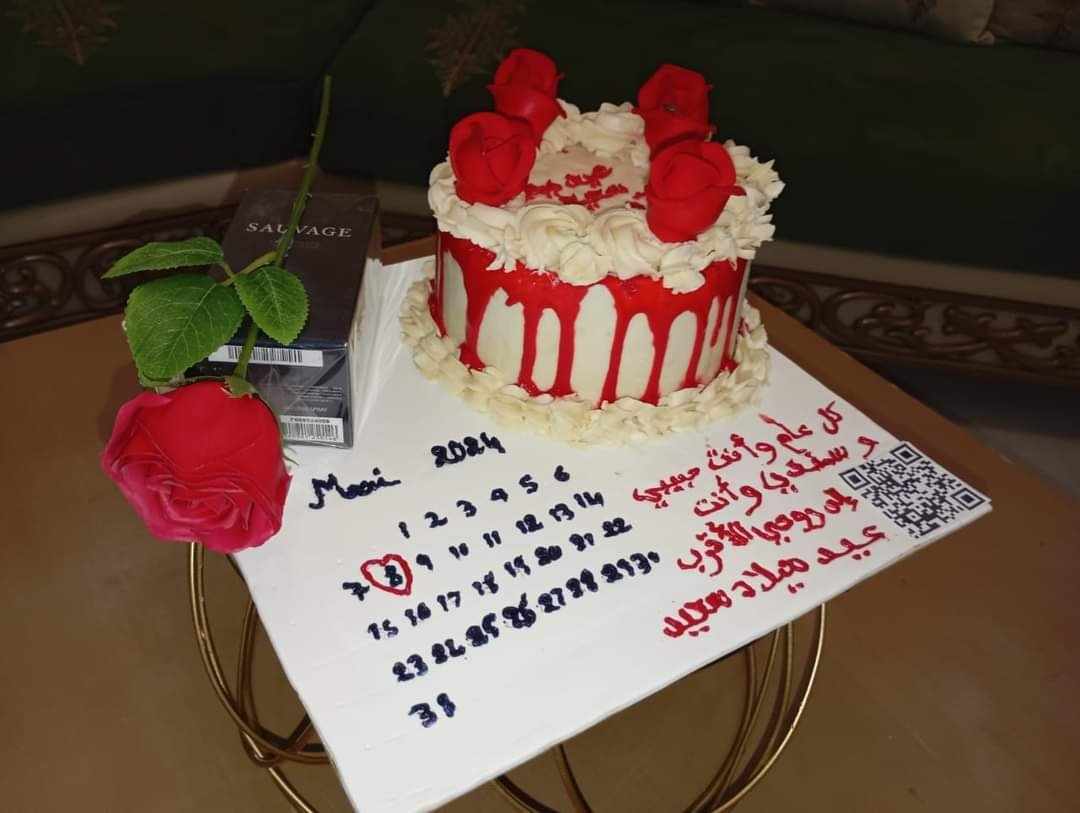 SAUVAGE
Mai 2024
1 2 3 4 5 6
7 8 9 10 11 12 13 14
15 16 17 18 19 20 21 22
23 24 25 26 27 28 29 30
31
كل عام وأنت حبيبي
و سندي وأنت
إلى روحي الأقرب
عيد ميلاد سعيد